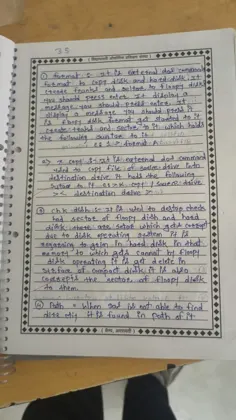 35
1) format :- it is external dos command
format to copy disk and hard disk. it
create tracks and sectors to floopy disk
you should press enter. It display a
message you should press enter. It
display a message you should press it
is floopy disk format get started to it
create tracks and sector to it which holds
the following syntax to it.
ex 1:> format A:
2) x copy :- it is external dos command
used to copy file of source drive into
destination drive. It holds the following
syntax to it ex :> x copy / source drive
>< destination drive >
3) Chk disk :- It is used to destop check
bad sector of floopy disk and hard
disk
due to disk operating system it is
beganning to gain in hard disk in that
memory to which gets cannot by floopy
disk operating it is get delete in
surface of compact disk it is also
the sector of floopy disk
to them.
4) Path = When OS is not able to find
it is found in Path of it